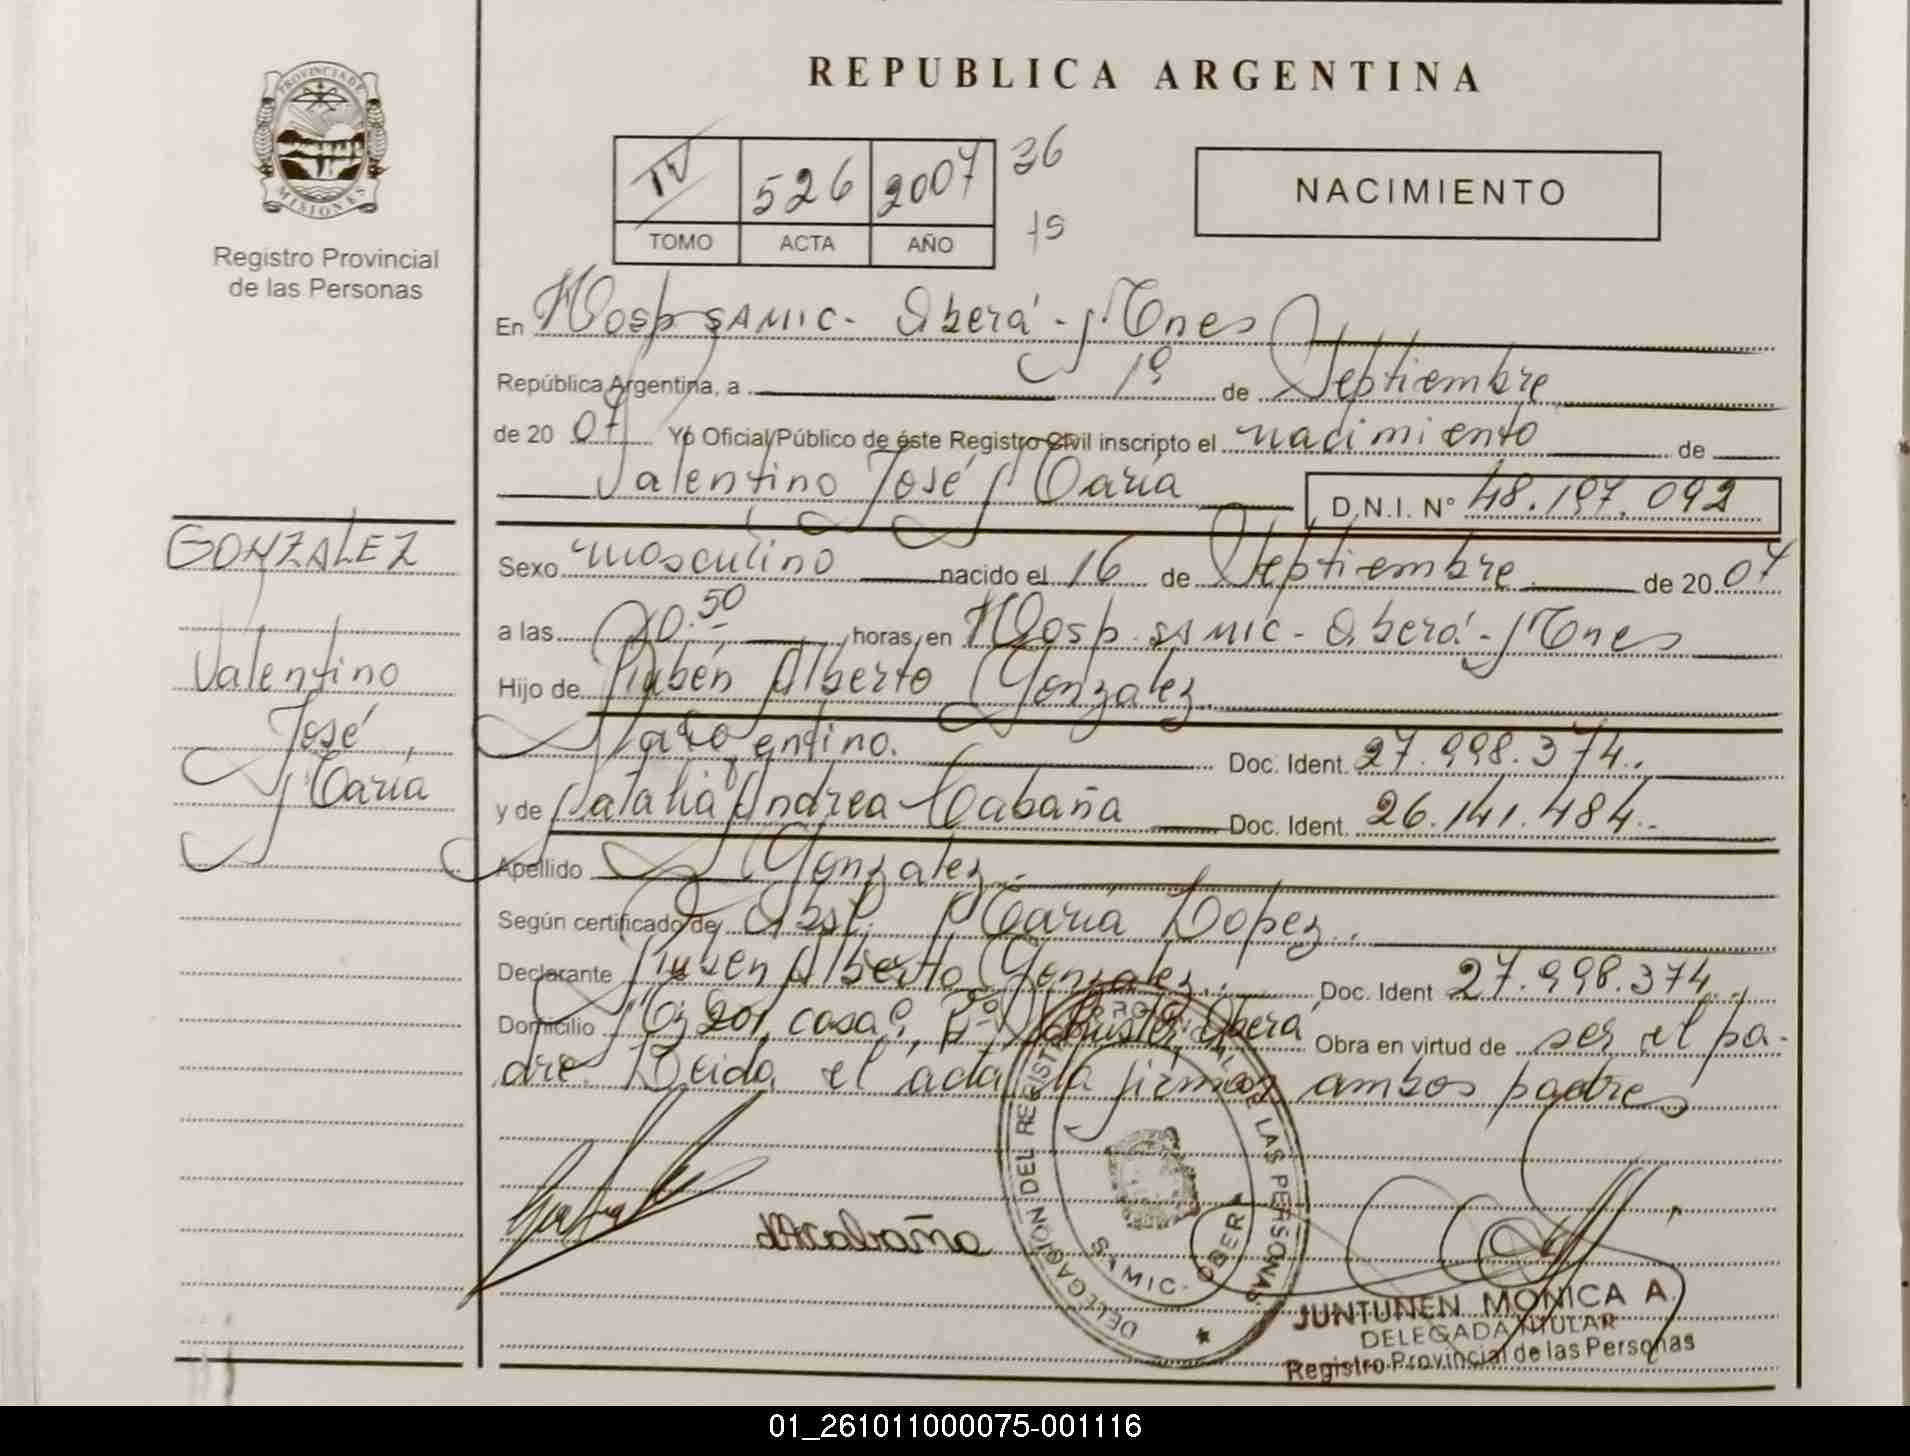 REPUBLICA ARGENTINA
PROVINCIA DE MISIONES
Registro Provincial
de las Personas
IV 526 2007 36
TOMO ACTA AÑO 15
NACIMIENTO
En Hosp SAMIC - Oberá - Mnes
República Argentina, a 19 de Septiembre
de 20 07 Yo Oficial Público de éste Registro Civil inscripto el nacimiento de
Valentino José María D.N.I. N° 48.197.092
GONZALEZ
Valentino
José
María
Sexo masculino nacido el 16 de Septiembre de 20 07
a las 20.50 horas, en Hosp. SAMIC - Oberá - Mnes
Hijo de Rubén Alberto Gonzalez
argentino. Doc. Ident. 27.998.374.
y de Natalia Andrea Cabaña Doc. Ident. 26.141.484.
Apellido Gonzalez.
Según certificado de Obst. María Lopez.
Declarante Ruben Alberto Gonzalez. Doc. Ident 27.998.374.
Domicilio casa Oberá Obra en virtud de ser el pa-
dre. Leida el acta la firman ambos padres
DELEGACION DEL REGISTRO PROVINCIAL DE LAS PERSONAS
SAMIC - OBERA
JUNTUNEN MONICA A.
DELEGADA TITULAR
Registro Provincial de las Personas
01_261011000075-001116